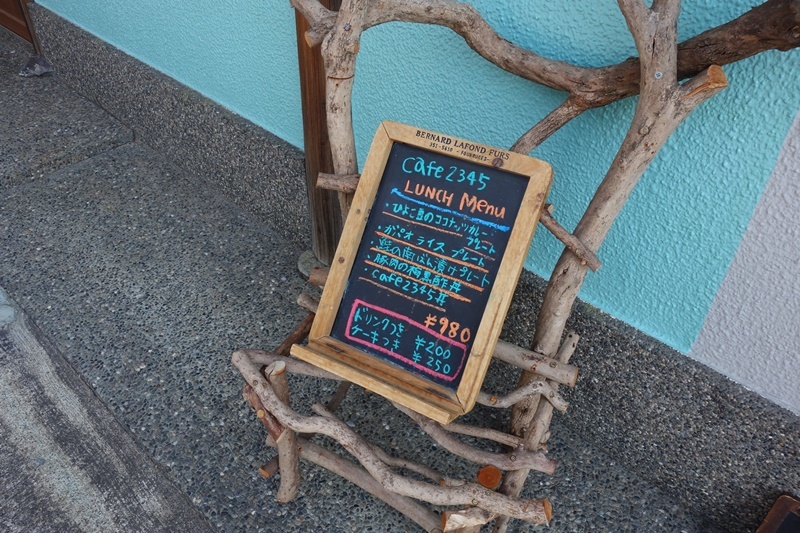 BERNARD LAFOND-FURS
cafe 2345
LUNCH Menu
・ひよこ豆のココナッツカレー
プレート
・ガパオライス プレート
・鮭の南ばん漬けプレート
・豚肉の梅黒酢丼
・cafe2345丼
¥980
ドリンクつき ¥200
ケーキつき ¥250